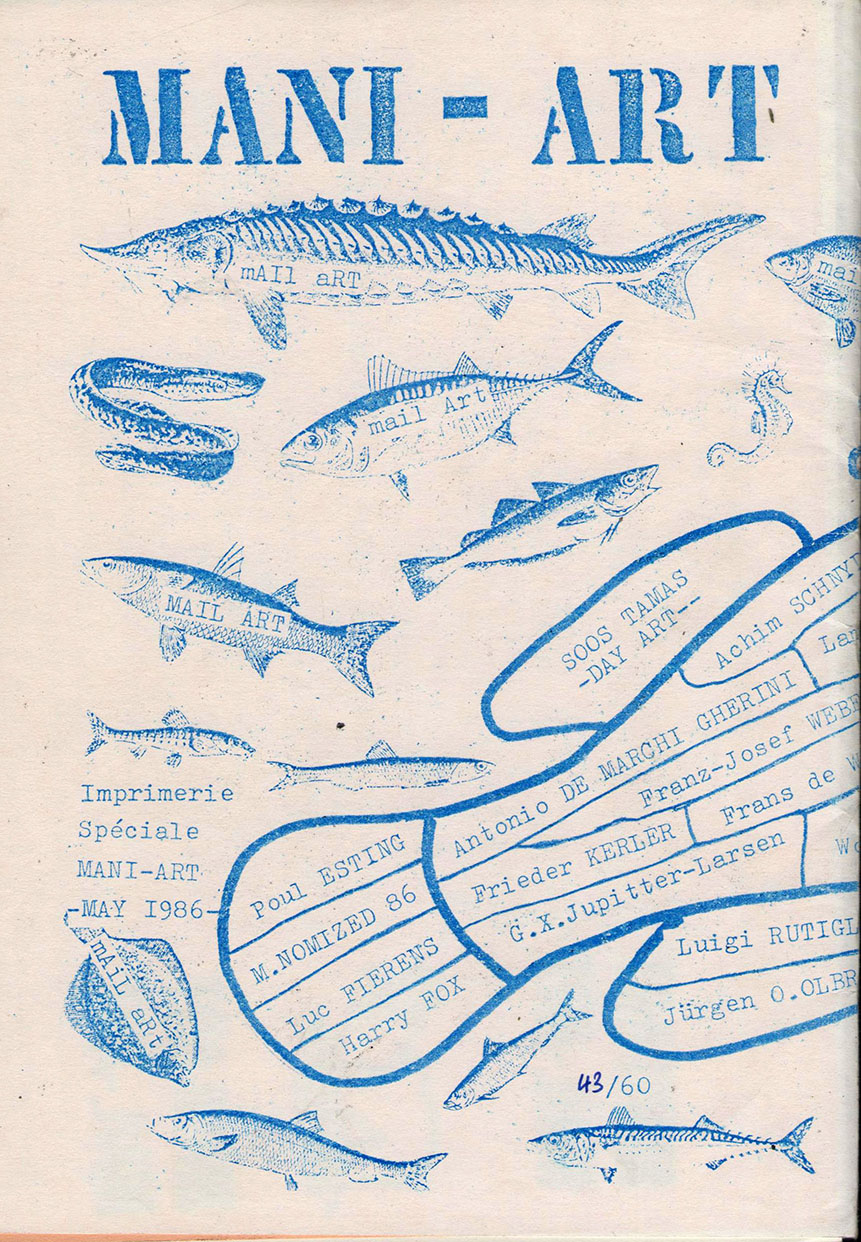 MANI - ART
mAIl aRT
mai
mail Art
MAIL ART
SOOS TAMAS
-DAY ART--
Achim SCHNY
Lar
Antonio DE MARCHI GHERINI
Franz-Josef WEBE
Frans de W
Frieder KERLER
G.X.Jupitter-Larsen
Wo
Luigi RUTIGL
Jürgen O.OLBR
Poul ESTING
M.NOMIZED 86
Luc FIERENS
Harry FOX
Imprimerie
Spéciale
MANI-ART
-MAY 1986-
mAiL aRt
43/60